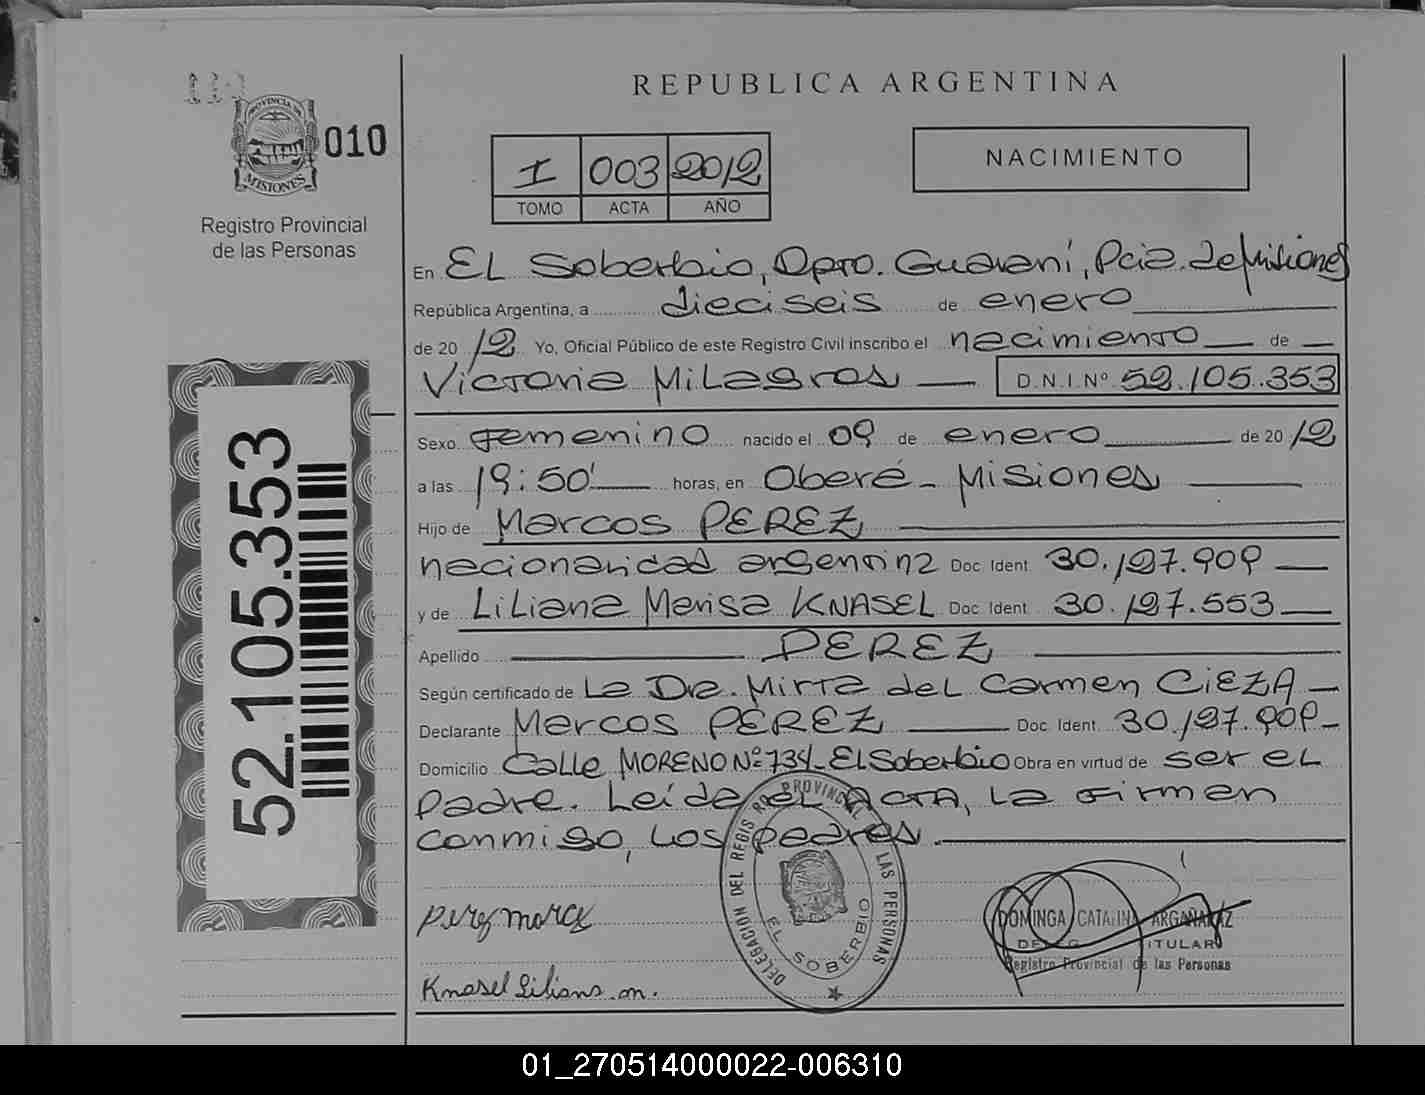 REPUBLICA ARGENTINA
010
PROVINCIA DE
MISIONES
Registro Provincial
de las Personas
I 003 2012
TOMO ACTA AÑO
NACIMIENTO
En EL Soberbio, Dpto. Guaraní, Pcia. de Misiones
República Argentina, a dieciseis de enero
de 2012 Yo, Oficial Público de este Registro Civil inscribo el nacimiento de
Victoria Milagros D.N.I.Nº 52.105.353
Sexo Femenino nacido el 09 de enero de 2012
a las 19:50' horas, en Oberá - Misiones
Hijo de Marcos PEREZ
nacionalidad argentina Doc. Ident. 30.197.909
y de Liliana Marisa KNASEL Doc. Ident. 30.197.553
Apellido PEREZ
Según certificado de La Dra. Mirta del Carmen CIEZA
Declarante Marcos PEREZ Doc. Ident. 30.197.909
Domicilio Calle MORENO Nº 734 - El Soberbio Obra en virtud de ser el
padre. Leída el ACTA, la firman
conmigo, los padres.
52.105.353
DELEGACION DEL REGISTRO PROVINCIAL LAS PERSONAS
EL SOBERBIO
Perez marcos
Knasel Liliana m.
DOMINGA CATALINA ARGAÑARAZ
TITULAR
Registro Provincial de las Personas
01_270514000022-006310